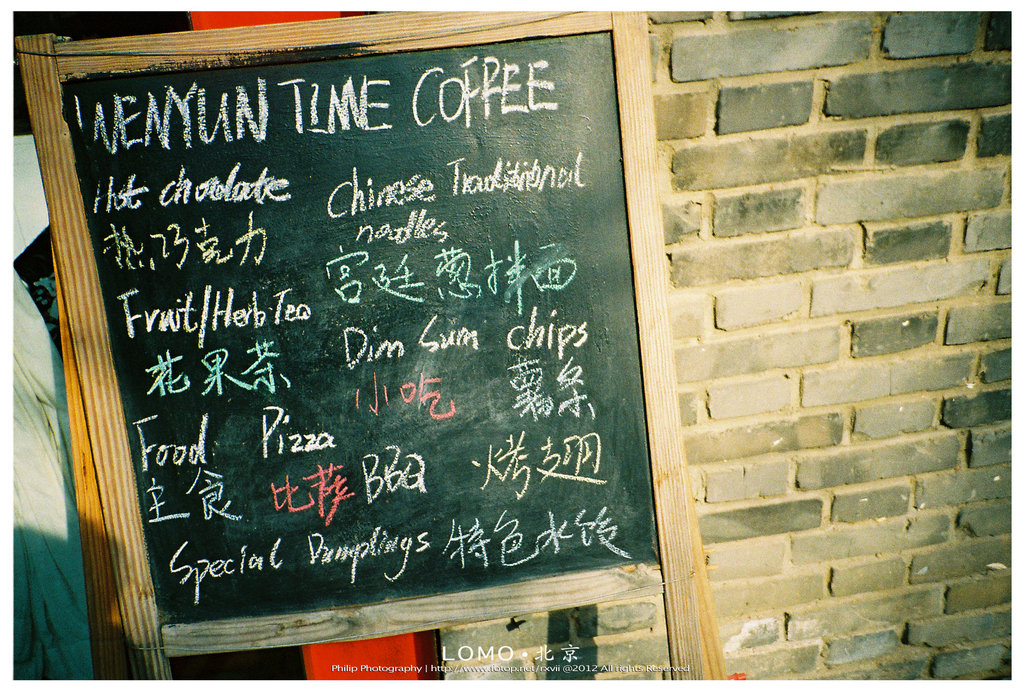 WENYUN TIME COFFEE
Hot chocolate
热巧克力
Chinese Traditional
noodles
宫廷葱拌面
Fruit/Herb Tea
花果茶
Dim Sum chips
小吃 薯条
Food Pizza
主食 比萨 BBQ 烤翅
Special Dumplings 特色水饺
LOMO·北京
Philip Photography | http://www.fotop.net/rxvii @2012 All rights Reserved